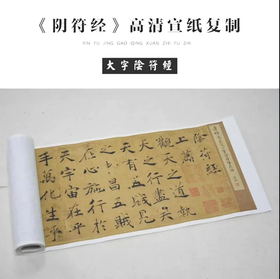 《阴符经》高清宣纸复制
YIN FU JING GAO QING XUAN ZHI FU ZHI
大字陰符經
陰符經
上篇
觀天之道執
天之行盡矣
天有五賊見
之者昌五賊
在心施行於
天宇宙在乎
手萬化生乎